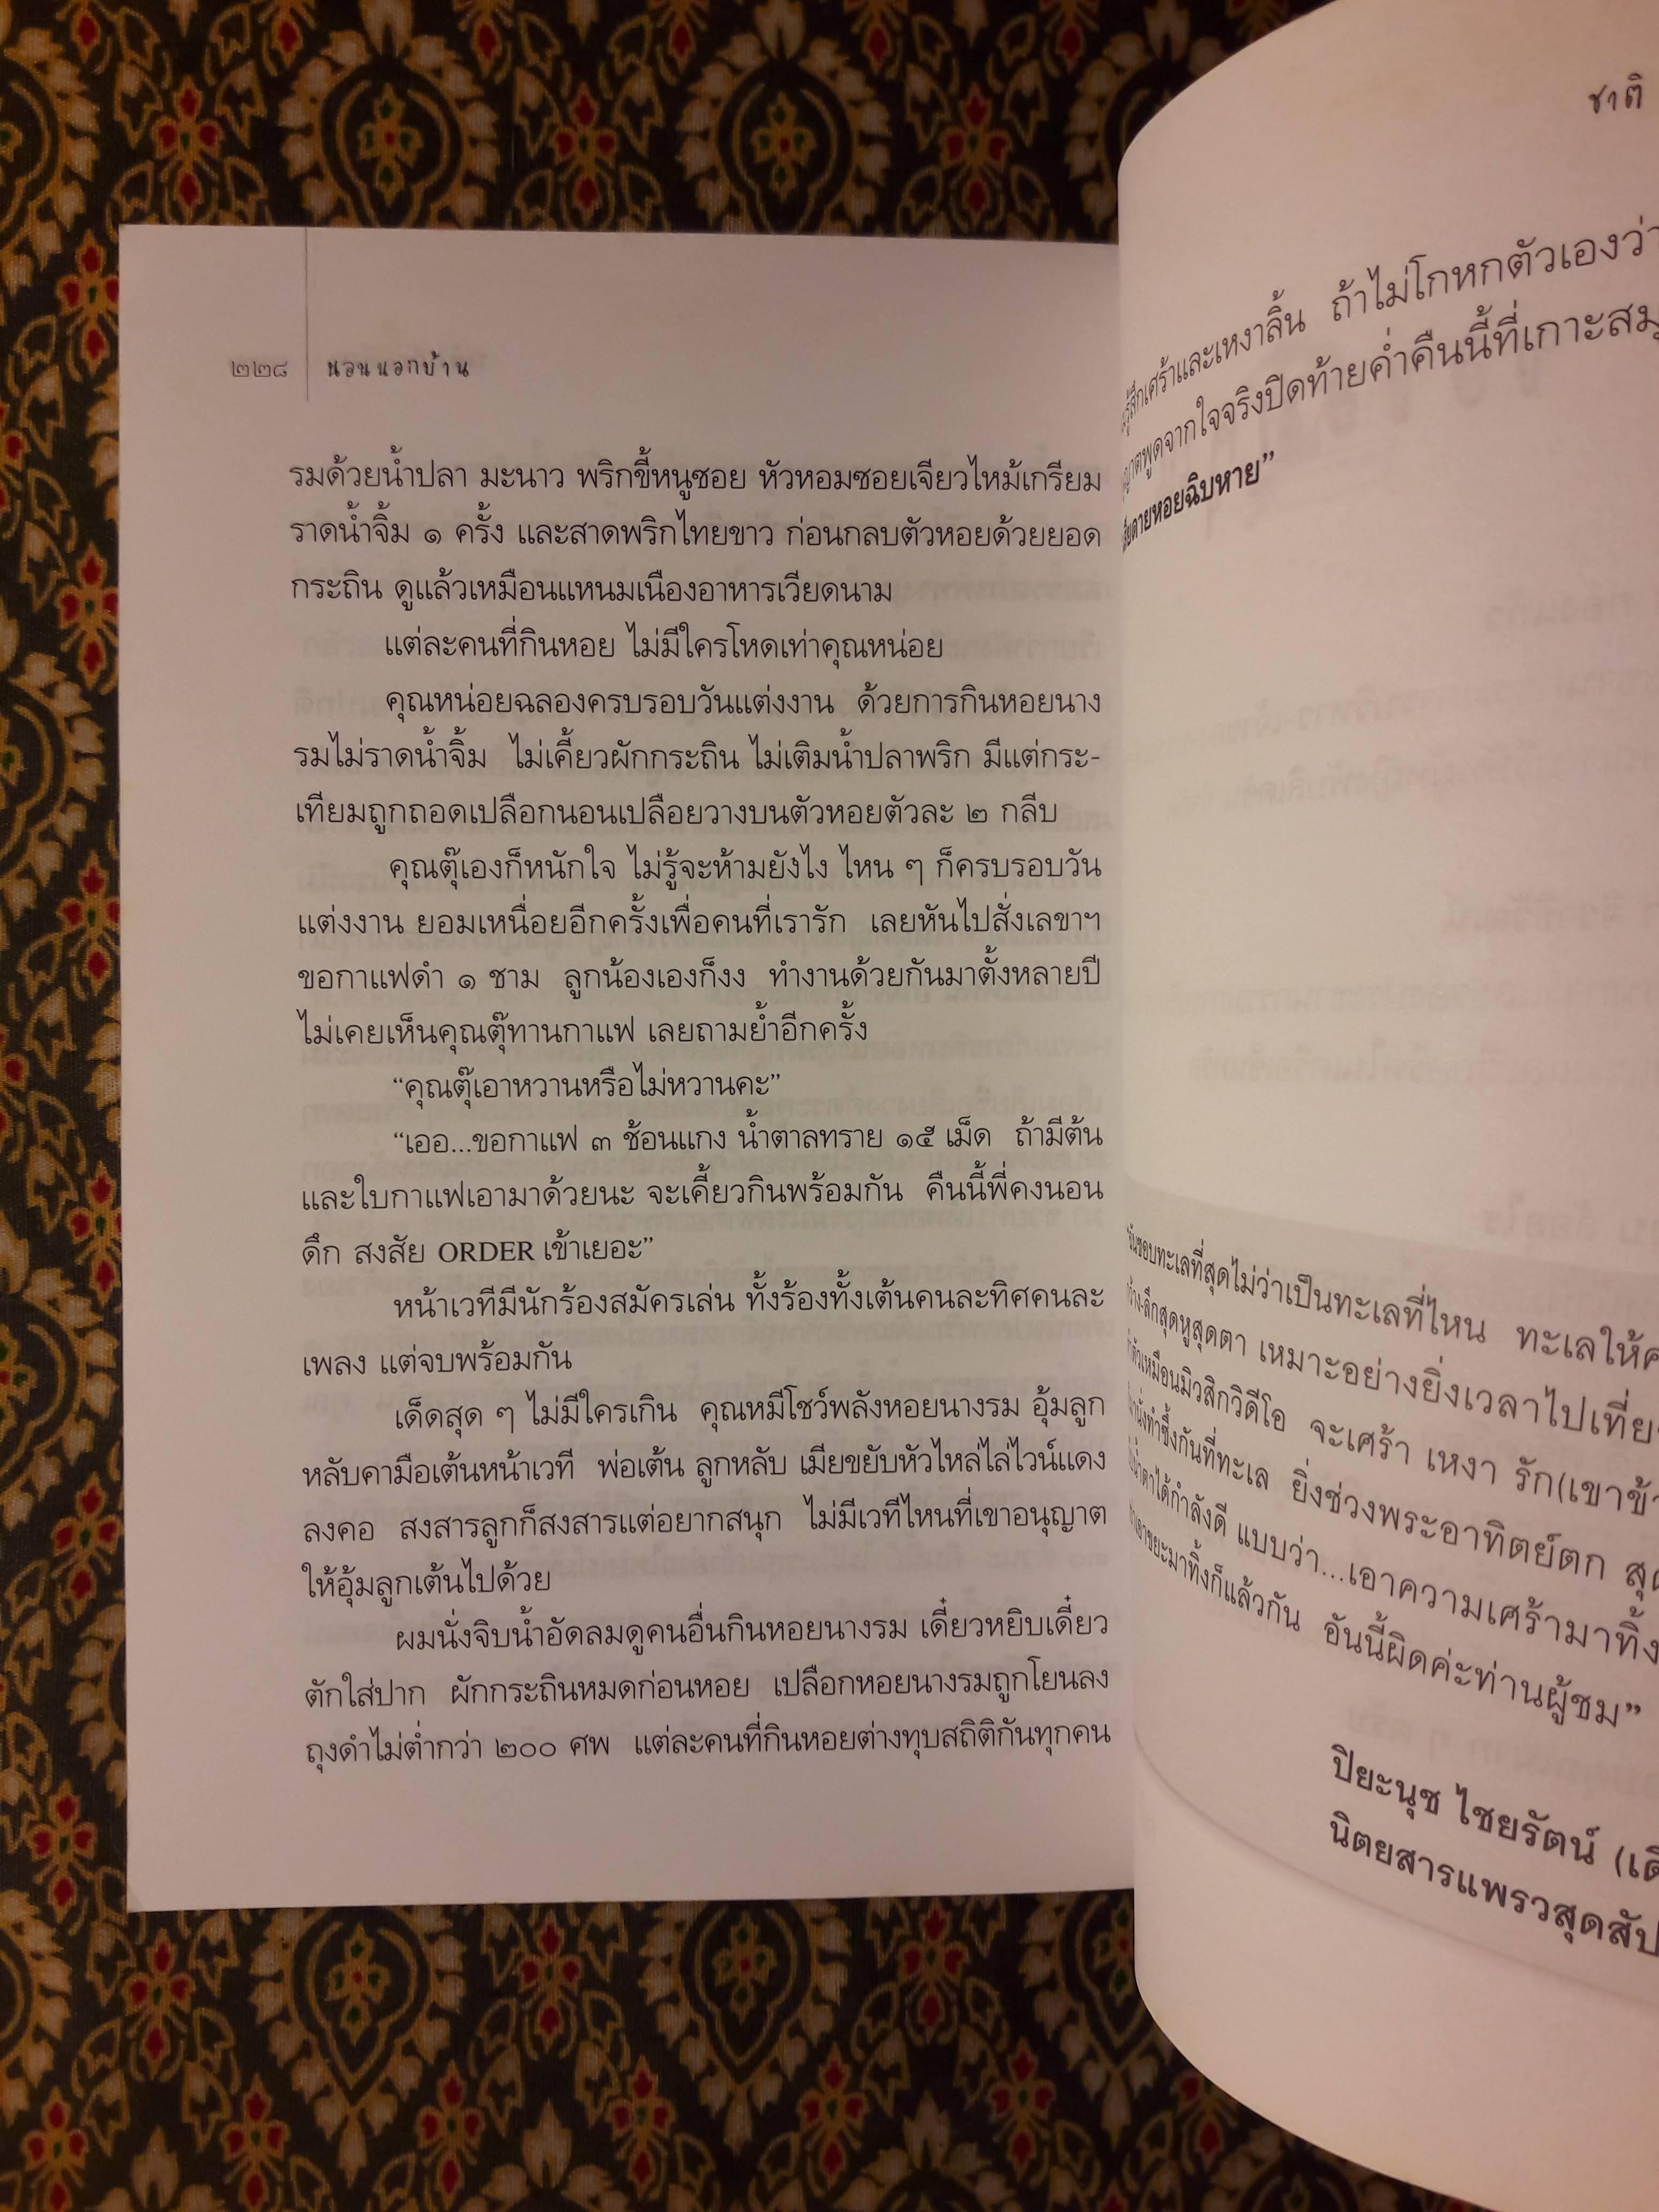 ๒๒๘ นอนนอกบ้าน
รมด้วยน้ำปลา มะนาว พริกขี้หนูซอย หัวหอมซอยเจียวไหม้เกรียม
ราดน้ำจิ้ม ๑ ครั้ง และสาดพริกไทยขาว ก่อนกลบตัวหอยด้วยยอด
กระถิน ดูแล้วเหมือนแหนมเนืองอาหารเวียดนาม
แต่ละคนที่กินหอย ไม่มีใครโหดเท่าคุณหน่อย
คุณหน่อยฉลองครบรอบวันแต่งงาน ด้วยการกินหอยนาง
รมไม่ราดน้ำจิ้ม ไม่เคี้ยวผักกระถิน ไม่เติมน้ำปลาพริก มีแต่กระ-
เทียมถูกถอดเปลือกนอนเปลือยวางบนตัวหอยตัวละ ๒ กลีบ
คุณตุ๊เองก็หนักใจ ไม่รู้จะห้ามยังไง ไหน ๆ ก็ครบรอบวัน
แต่งงาน ยอมเหนื่อยอีกครั้งเพื่อคนที่เรารัก เลยหันไปสั่งเลขาฯ
ขอกาแฟดำ ๑ ชาม ลูกน้องเองก็งง ทำงานด้วยกันมาตั้งหลายปี
ไม่เคยเห็นคุณตุ๊ทานกาแฟ เลยถามย้ำอีกครั้ง
“คุณตุ๊เอาหวานหรือไม่หวานคะ”
“เออ...ขอกาแฟ ๓ ช้อนแกง น้ำตาลทราย ๑๕ เม็ด ถ้ามีต้น
และใบกาแฟเอามาด้วยนะ จะเคี้ยวกินพร้อมกัน คืนนี้พี่คงนอน
ดึก สงสัย ORDER เข้าเยอะ”
หน้าเวทีมีนักร้องสมัครเล่น ทั้งร้องทั้งเต้นคนละทิศคนละ
เพลง แต่จบพร้อมกัน
เด็ดสุด ๆ ไม่มีใครเกิน คุณหมีโชว์พลังหอยนางรม อุ้มลูก
หลับคามือเต้นหน้าเวที พ่อเต้น ลูกหลับ เมียขยับหัวไหล่ไล่ไวน์แดง
ลงคอ สงสารลูกก็สงสารแต่อยากสนุก ไม่มีเวทีไหนที่เขาอนุญาต
ให้อุ้มลูกเต้นไปด้วย
ผมนั่งจิบน้ำอัดลมดูคนอื่นกินหอยนางรม เดี๋ยวหยิบเดี๋ยว
ตักใส่ปาก ผักกระถินหมดก่อนหอย เปลือกหอยนางรมถูกโยนลง
ถุงดำไม่ต่ำกว่า ๒๐๐ ศพ แต่ละคนที่กินหอยต่างทุบสถิติกันทุกคน
ชาติ
รู้สึกเศร้าและเหงาลิ้น ถ้าไม่โกหกตัวเองว่า
พูดจากใจจริงปิดท้ายค่ำคืนนี้ที่เกาะสมุ
หอยฉิบหาย”
ชอบทะเลที่สุดไม่ว่าเป็นทะเลที่ไหน ทะเลให้
ลึกสุดหูสุดตา เหมาะอย่างยิ่งเวลาไปเที่ย
เหมือนมิวสิกวิดีโอ จะเศร้า เหงา รัก(เขาข้า
นั่งทำซึ้งกันที่ทะเล ยิ่งช่วงพระอาทิตย์ตก
น้ำตาได้กำลังดี แบบว่า...เอาความเศร้ามาทิ้ง
เอาขยะมาทิ้งก็แล้วกัน อันนี้ผิดค่ะท่านผู้ชม”
ปิยะนุช ไชยรัตน์
นิตยสารแพรวสุดสัป